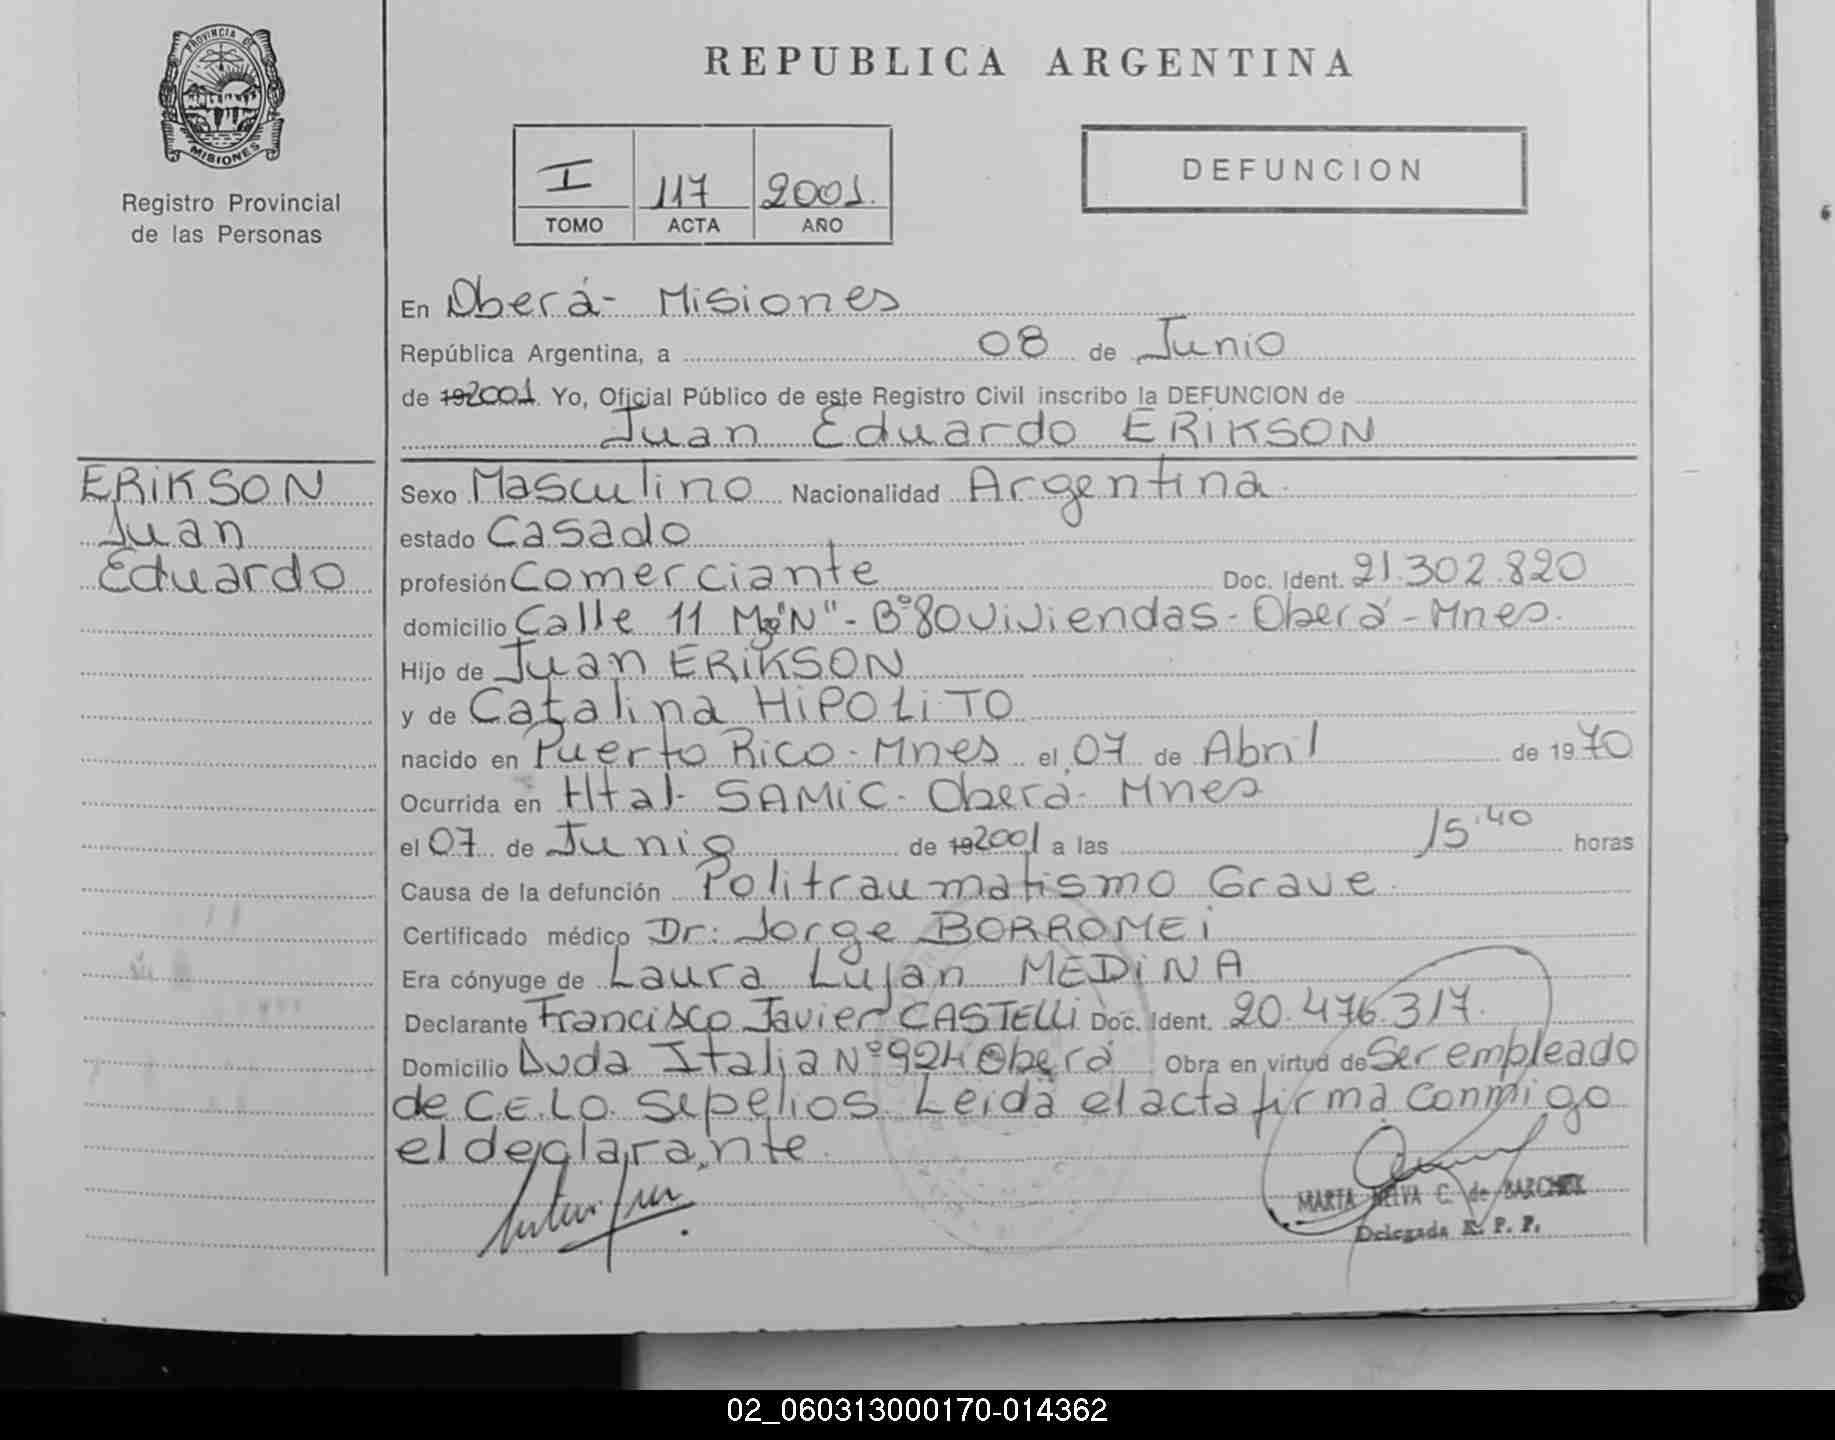 PROVINCIA DE
MISIONES
Registro Provincial
de las Personas
REPUBLICA ARGENTINA
I 117 2001.
TOMO ACTA AÑO
DEFUNCION
En Oberá- Misiones
República Argentina, a 08 de Junio
de 192001. Yo, Oficial Público de este Registro Civil inscribo la DEFUNCION de
Juan Eduardo ERIKSON
ERIKSON
Juan
Eduardo
Sexo Masculino Nacionalidad Argentina.
estado Casado
profesión Comerciante Doc. Ident. 21.302.820
domicilio Calle 11 Mz "N" - B° 80 viviendas - Oberá - Mnes.
Hijo de Juan ERIKSON
y de Catalina HIPOLITO
nacido en Puerto Rico - Mnes el 07 de Abril de 1970
Ocurrida en Htal- SAMIC- Oberá- Mnes
el 07 de Junio de 192001 a las 15:40 horas
Causa de la defunción Politraumatismo Grave.
Certificado médico Dr: Jorge BORROMEI
Era cónyuge de Laura Lujan MEDINA
Declarante Francisco Javier CASTELLI Doc. Ident. 20.476.317.
Domicilio Avda Italia N° 924 Oberá Obra en virtud de Ser empleado
de C.E.L.O. Sepelios. Leida el acta firma conmigo
el declarante.
MARTA C. de
Delegada R. P. P.
02_060313000170-014362